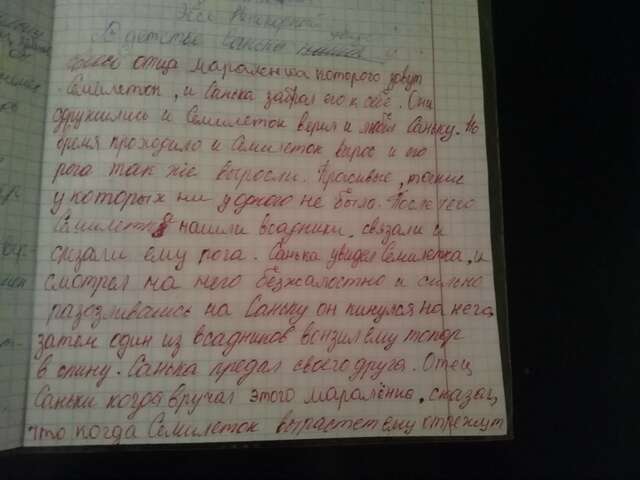 Эссе
В детстве Санька у
своего отца мараленка которого зовут
Семилеток, и Санька забрал его к себе. Они
сдружились и Семилеток верил и любил Саньку. Но
время проходило и Семилеток вырос и его
рога так же выросли. Красивые, такие
у которых ни у одного не было. После чего
Семилетка нашли всадники. связали и
срезали ему рога. Санька увидел Семилетка, и
смотрел на него безжалостно и сильно
разозлившись на Саньку он кинулся на него,
затем один из всадников вонзил ему топор
в спину. Санька предал своего друга. Отец
Саньки когда вручал этого мараленка, сказал,
что когда Семилеток вырастет ему отрежут